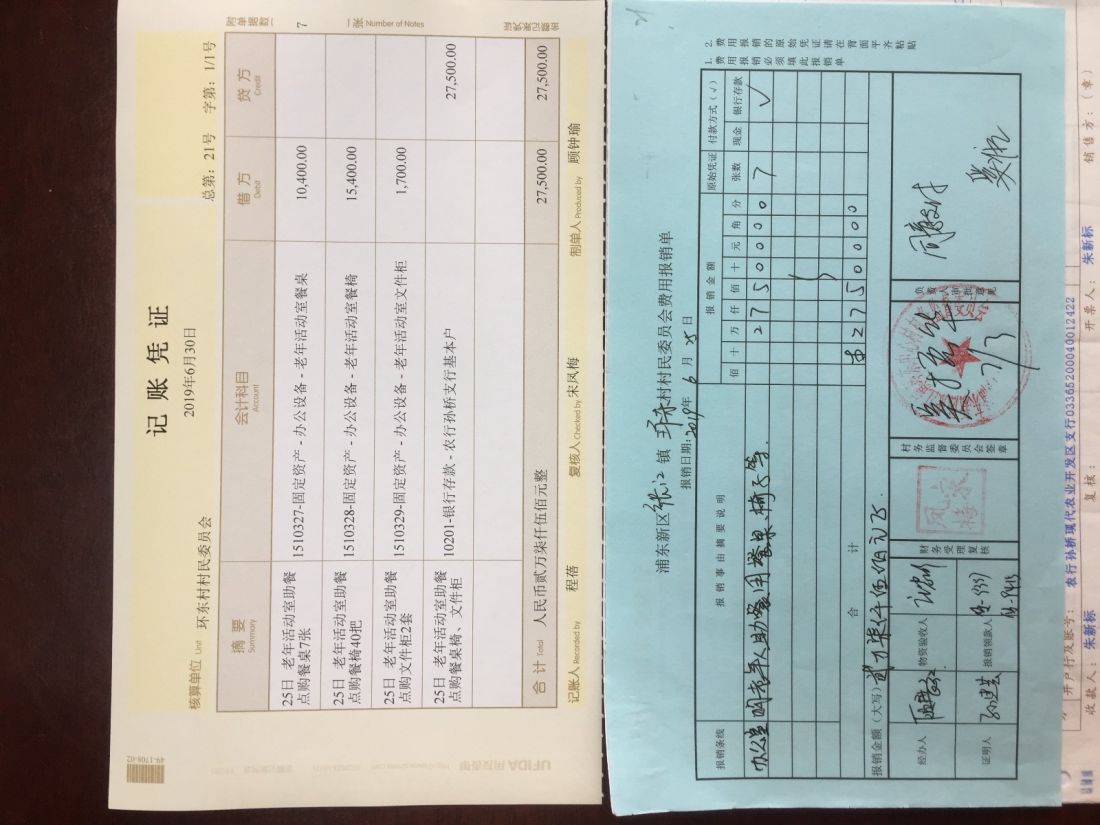 记 账 凭 证
2019年6月30日
核算单位 Unit 环东村村民委员会
总第: 21号 字第: 1/1号
附单据数 7 张 Number of Notes
摘 要 Summary
会计科目 Account
借 方 Debit
贷 方 Credit
25日 老年活动室助餐点购餐桌7张 1510327-固定资产 - 办公设备 - 老年活动室餐桌 10,400.00
25日 老年活动室助餐点购餐椅40把 1510328-固定资产 - 办公设备 - 老年活动室餐椅 15,400.00
25日 老年活动室助餐点购文件柜2套 1510329-固定资产 - 办公设备 - 老年活动室文件柜 1,700.00
25日 老年活动室助餐点购餐桌椅、文件柜 10201-银行存款 - 农行孙桥支行基本户 27,500.00
合 计 Total 人民币贰万柒仟伍佰元整 27,500.00 27,500.00
记账人 Recorded by 程蓓 复核人 Checked by 宋凤梅 制单人 Produced by 顾钟瑜
49-1708-02
UFIDA
浦东新区张江镇环东村村民委员会费用报销单
报销日期: 2019年6月25日
报销条线 报销事由摘要说明 报销金额 原始凭证张数 付款方式(√)
百 十 万 仟 佰 十 元 角 分 现金 银行存款
办公室 购老年人助餐用餐桌、椅子等. 2750000 7 √
合 计 ¥2750000
报销金额(大写) 贰万柒仟伍佰元正.
经办人 物资验收人 财务受理复核 宋凤梅 村务监督委员会签章 负责人审批意见 同意支付
证明人 报销领款人 7/3
1. 费用报销必须填此报销单
2. 费用报销的原始凭证请在背面平齐粘贴
开户行及账号: 农行孙桥现代农业开发区支行03365200040012422
收款人: 朱新标 复核: 开票人: 朱新标 销售方: (章)